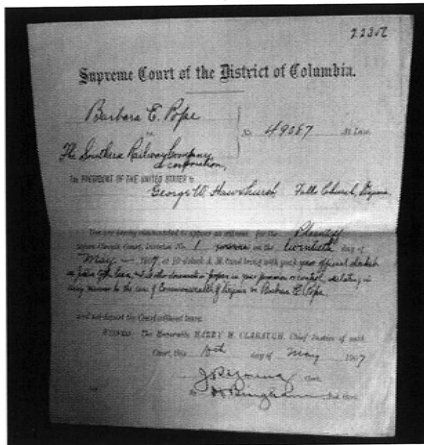 Supreme Court of the District of Columbia.
Barbara E. Pope
vs.
No. 49087 At Law.
The Southern Railway Company
a corporation,
The PRESIDENT OF THE UNITED STATES to
George W. Hawxhurst, Falls Church, Virginia.
You are hereby commanded to appear as witness for the Plaintiff
before Circuit Court, Division No. 1 on the twentieth day of
May, 1907, at 10 o'clock A. M. and bring with you your official docket
documents & papers in your possession or control, relating in
any manner to the case of Commonwealth of Virginia vs Barbara E. Pope.
and not depart the Court without leave.
WITNESS, The Honorable HARRY M. CLABAUGH, Chief Justice of said
Court, this 10th day of May 1907
J. R. Young Clerk.
By Bingham